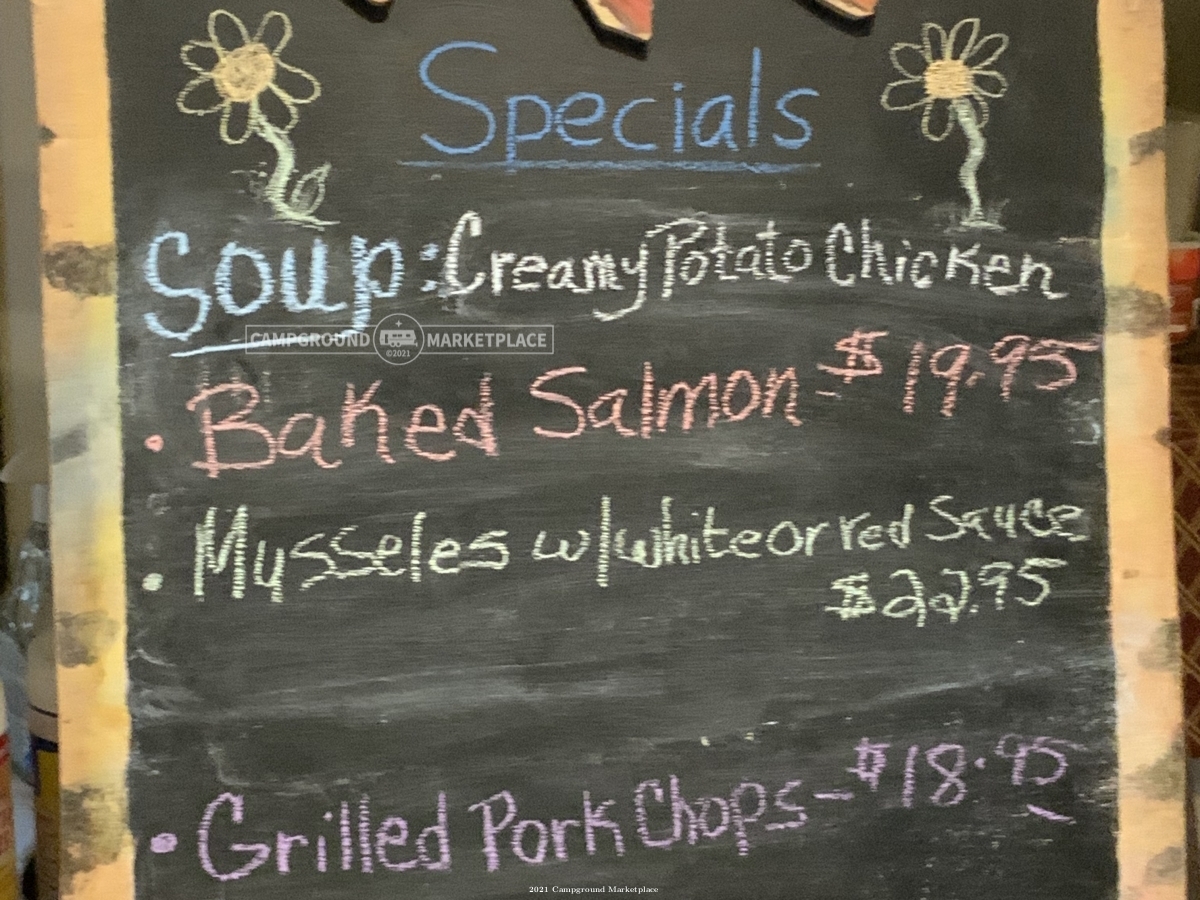 Specials
Soup: Creamy Potato Chicken
CAMPGROUND MARKETPLACE
©2021
• Baked Salmon - $19.95
• Musseles w/white or red Sauce
$22.95
• Grilled Pork Chops - $18.95
2021 Campground Marketplace